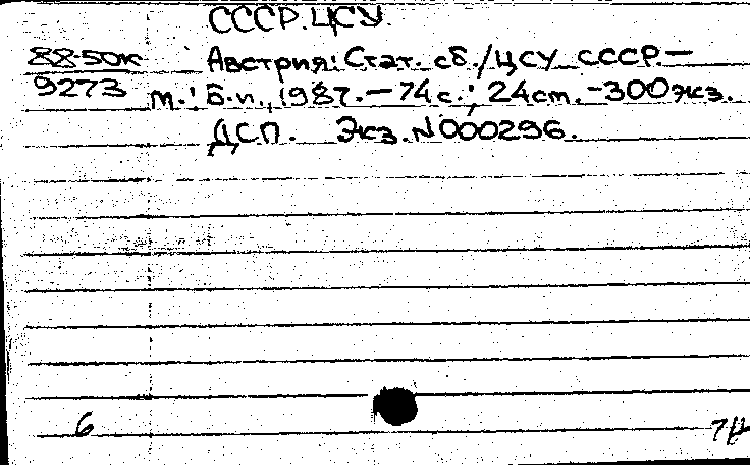 СССР. ЦСУ.
88-50к Австрия: Стат. сб./ЦСУ СССР.—
9273 М.: Б.и., 1987.—74 с.; 24 см.-300 экз.
ДСП. Экз. N 000296.
6